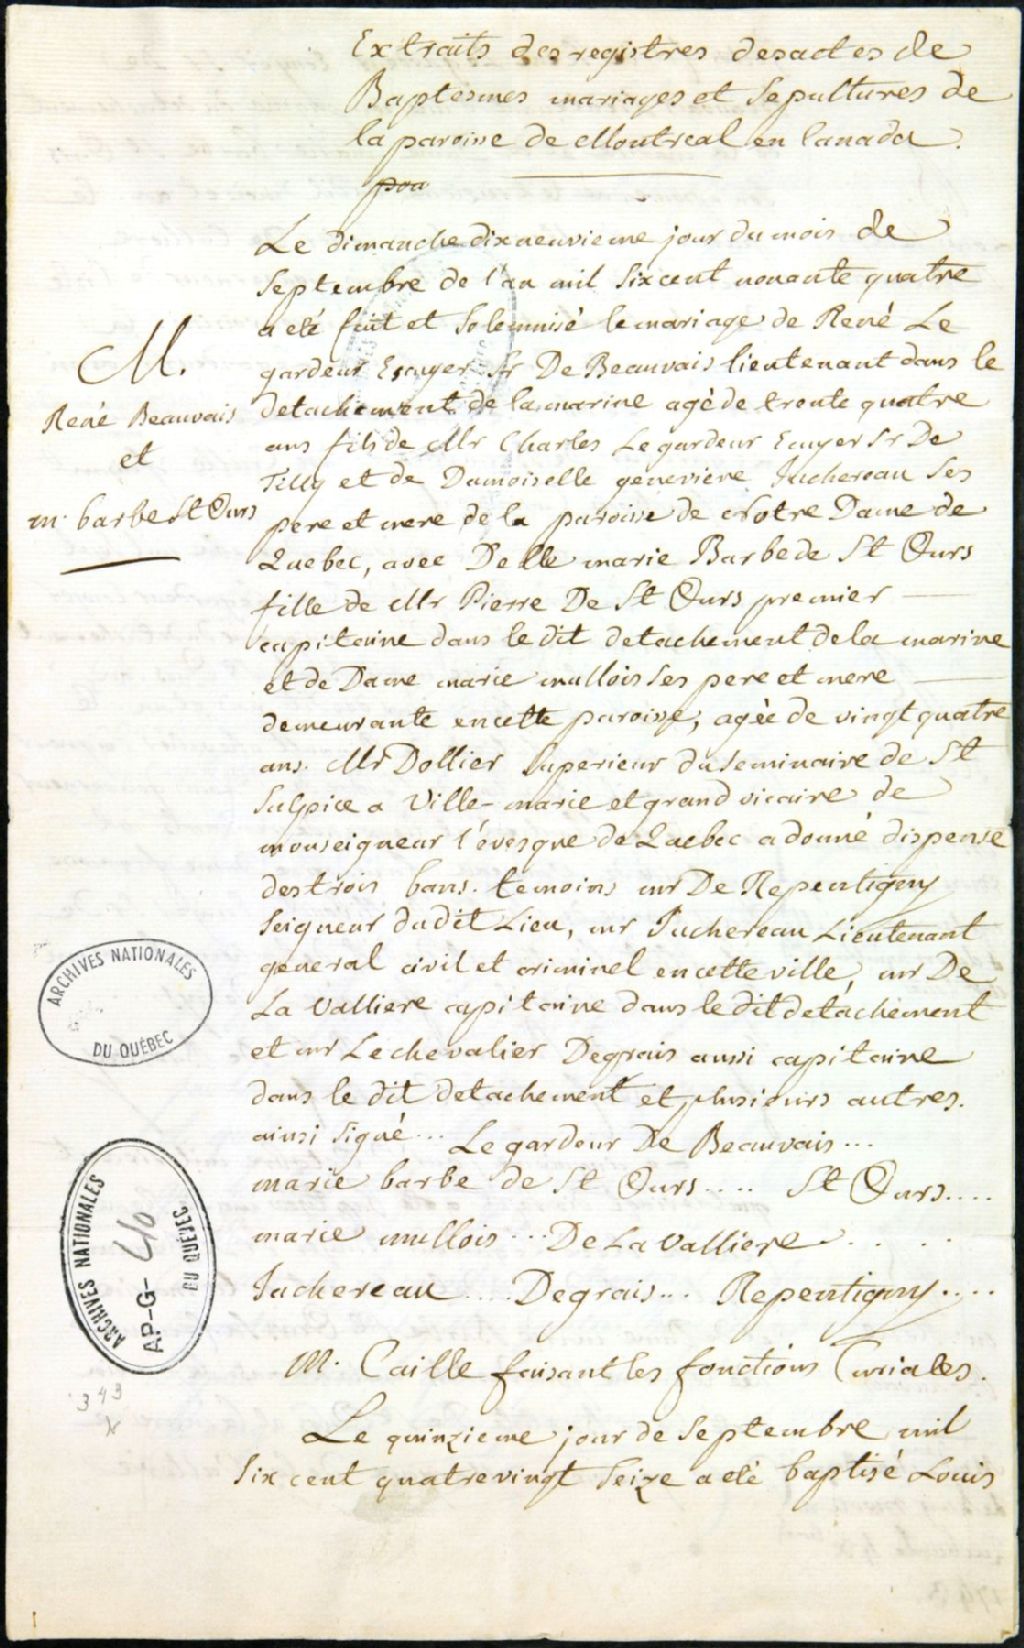 Extraits des registres des actes de
Baptesmes mariages et Sepultures de
la paroisse de Montreal en Canada.
pou
Le dimanche dixneuvieme jour du mois de
Septembre de l'an mil Six cent nonante quatre
a eté fait et Solemnisé le mariage de René Le
gardeur Ecuyer Sr De Beauvais lieutenant dans le
detachement de la marine agé de trente quatre
ans fils de Mr Charles Le gardeur Ecuyer Sr De
Tilly et de Damoiselle genevieve Juchereau Ses
pere et mere de la paroisse de Notre Dame de
Quebec, avec Delle marie Barbe de St Ours
fille de Mr Pierre De St Ours premier
capitaine dans le dit detachement de la marine
et de Dame marie mullois Ses pere et mere
demeurante en cette paroisse, agée de vingt quatre
ans. Mr Dollier Superieur du Seminaire de St
Sulpice a Ville-marie et grand vicaire de
monseigneur l'évesque de Quebec a donné dispense
des trois bans. temoins mr De Repentigny
Seigneur dudit Lieu, mr Juchereau Lieutenant
general civil et criminel en cette ville, mr De
La Valliere capitaine dans le dit detachement
et mr Le chevalier Degrais aussi capitaine
dans le dit detachement et plusieurs autres.
ainsi Signé... Le gardeur De Beauvais...
marie barbe de St Ours.... St Ours....
marie mullois... De La Valliere.....
Juchereau.... Degrais... Repentigny....
M. Caille faisant les fonctions Curiales.
Le quinzieme jour de Septembre mil
Six cent quatre vingt Seize a eté baptisé Louis
M.
René Beauvais
et
m. barbe St Ours
ARCHIVES NATIONALES
DU QUÉBEC
ARCHIVES NATIONALES
DU QUÉBEC
AP-G-40
343